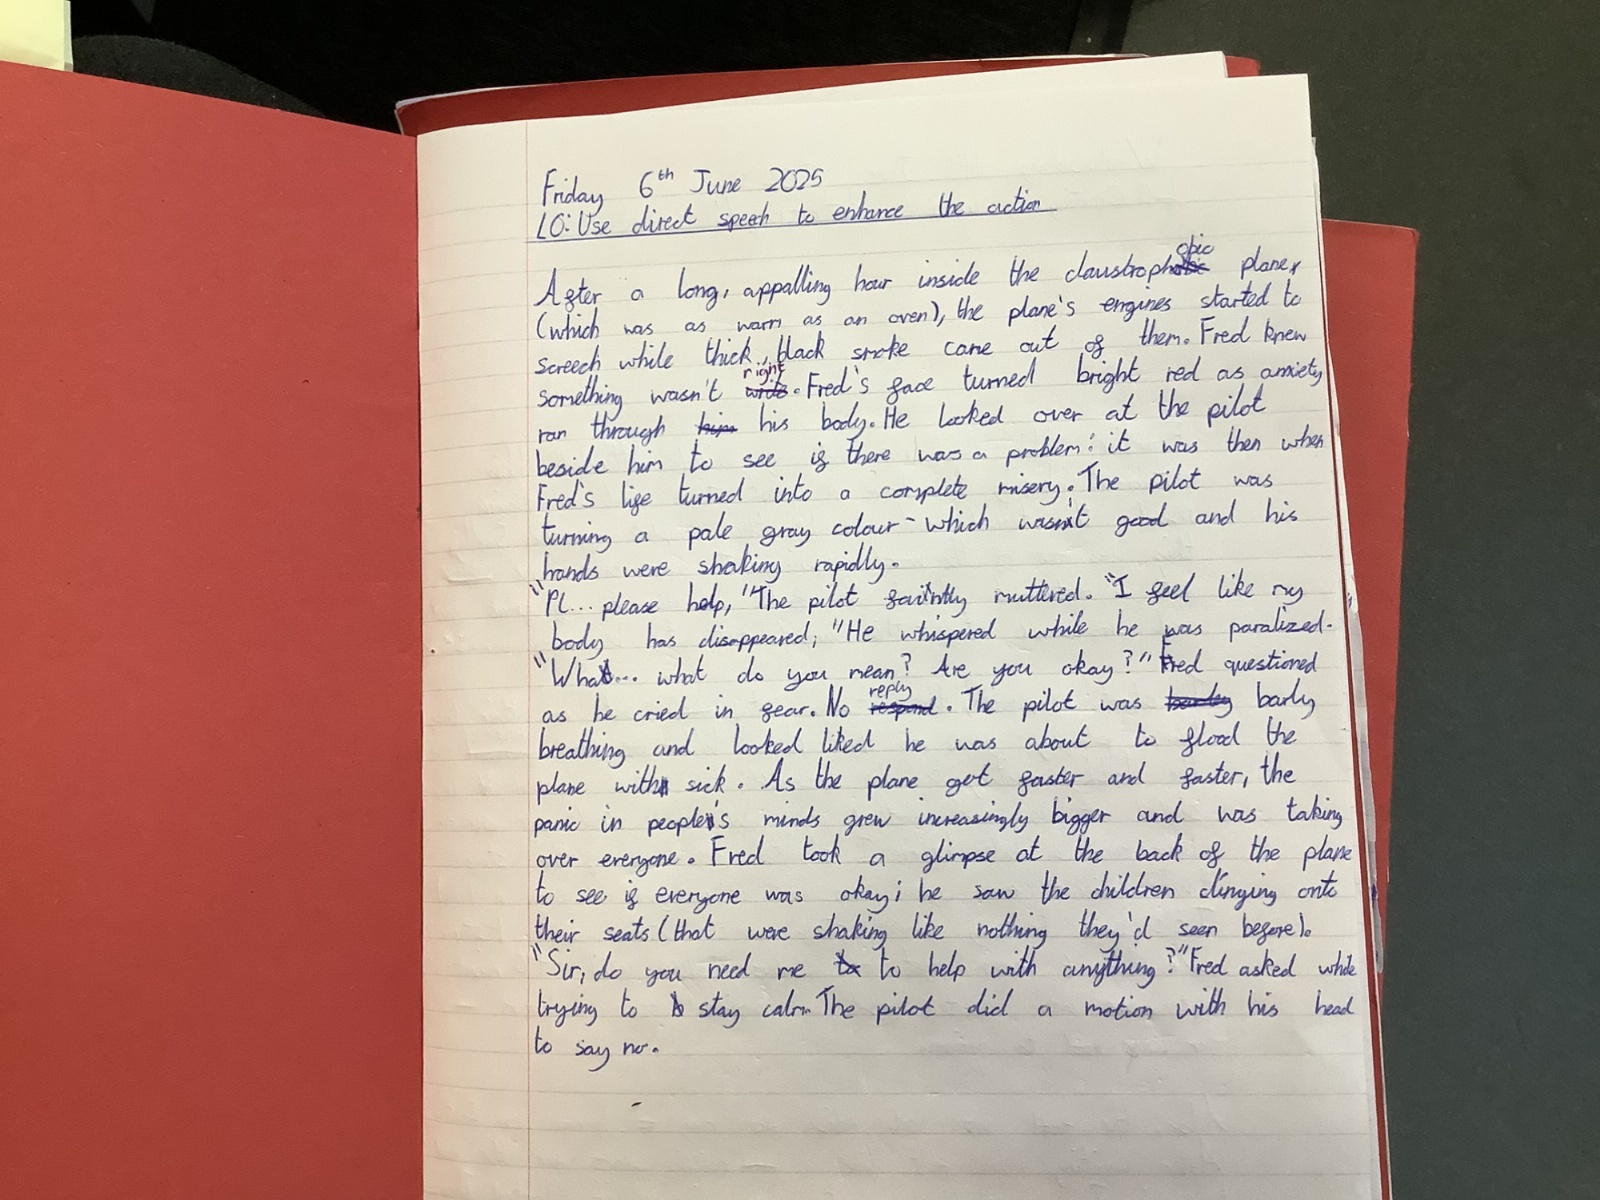 Friday 6th June 2025
LO: Use direct speech to enhance the action
After a long, appalling hour inside the claustrophobic plane,
(which was as warm as an oven), the plane's engines started to
screech while thick, black smoke came out of them. Fred knew
something wasn't right. Fred's face turned bright red as anxiety
ran through him his body. He looked over at the pilot
beside him to see if there was a problem: it was then when
Fred's life turned into a complete misery. The pilot was
turning a pale gray colour - which wasn't good and his
hands were shaking rapidly.
"Pl... please help," The pilot faintly muttered. "I feel like my
body has disappeared," He whispered while he was paralized.
"What... what do you mean? Are you okay?" Fred questioned
as he cried in fear. No reply respond. The pilot was barly
breathing and looked liked he was about to flood the
plane with sick. As the plane got faster and faster, the
panic in people's minds grew increasingly bigger and was taking
over everyone. Fred took a glimpse at the back of the plane
to see if everyone was okay; he saw the children clinging onto
their seats (that were shaking like nothing they'd seen before).
"Sir, do you need me to to help with anything?" Fred asked while
trying to stay calm. The pilot did a motion with his head
to say no.